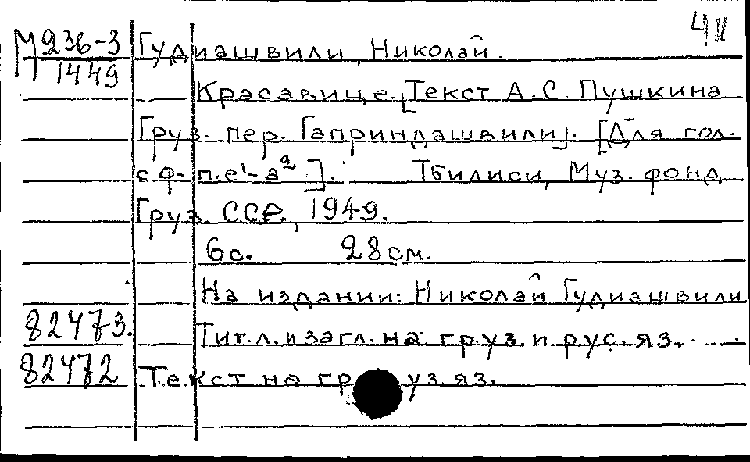 ЧИ
М 936-3 Гудиашвили, Николай.
1449
Красавице. [Текст А.С. Пушкина
Груз. пер. Гаприндашвили]. [Для гол.
с ф-п. е¹-а² ]. Тбилиси, Муз. фонд
Груз. ССР, 1949.
6 с. 28 см.
На издании: Николай Гудиашвили
82473. Тит. л. и загл. на груз. и рус. яз.
82472 Текст на груз. яз.